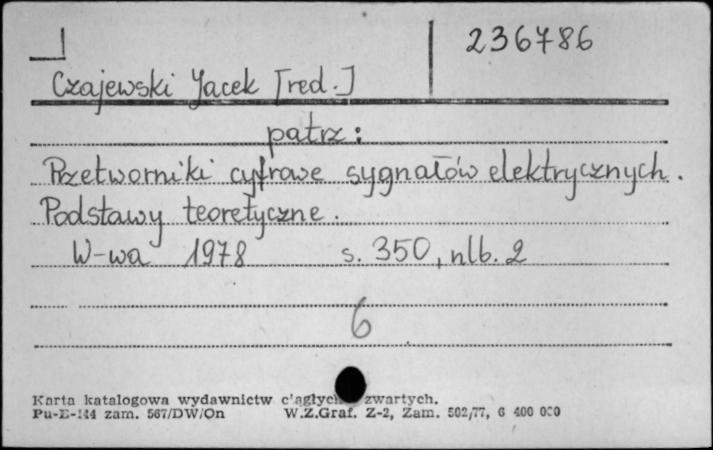 236786
Czajewski Jacek [red.]
patrz:
Przetworniki cyfrowe sygnałów elektrycznych.
Podstawy teoretyczne.
W-wa 1978 s. 350, nlb. 2
6
Karta katalogowa wydawnictw c'ągłych zwartych.
Pu-E-144 zam. 567/DW/On W.Z.Graf. Z-2, Zam. 502/77, 6 400 000